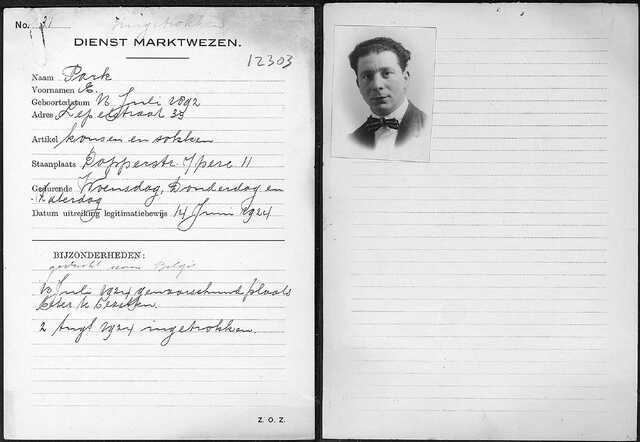 No. 31 Ingetrokken
DIENST MARKTWEZEN.
12303
Naam Park
Voornamen E.
Geboortedatum 12 Juli 1892
Adres Lepelstraat 33
Artikel kousen en sokken
Staanplaats Dapperstr. 7 perc 11
Gedurende Woensdag, Donderdag en
Zaterdag
Datum uitreiking legitimatiebewijs 14 Juni 1924
BIJZONDERHEDEN:
naar België
Juli 1924 plaats
2 Augt 1924 ingetrokken.
Z. O. Z.